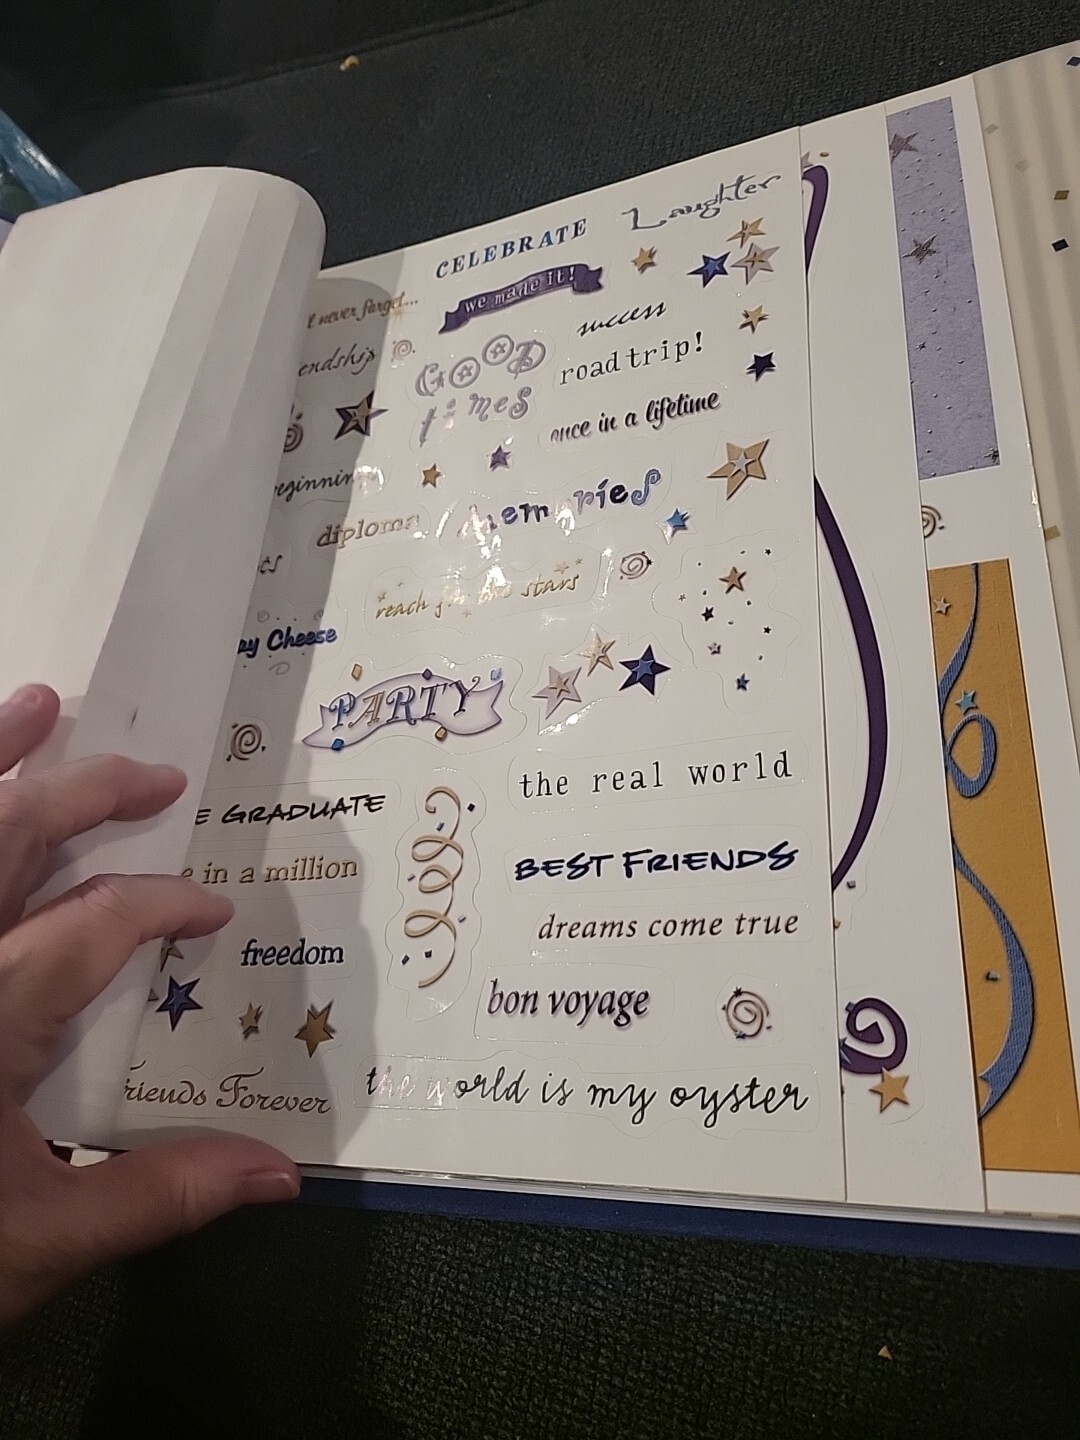 CELEBRATE
Laughter
we made it!
never forget...
success
endship
GOOD
times
road trip!
once in a lifetime
eginning
diploma
memories
reach for the stars
ay Cheese
PARTY
the real world
E GRADUATE
e in a million
BEST FRIENDS
dreams come true
freedom
bon voyage
riends Forever
the world is my oyster